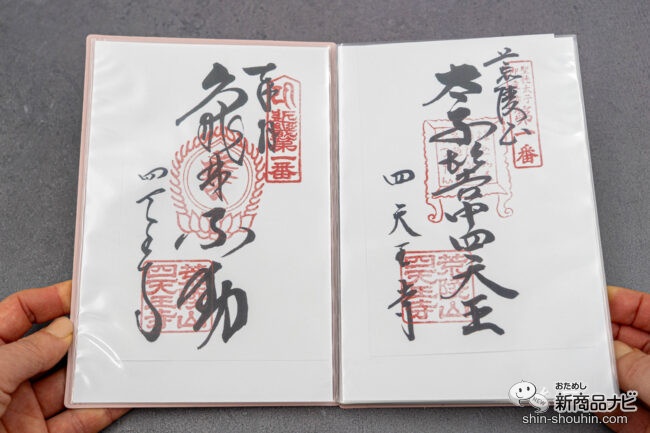 荒陵山
太子髻中四天王
四天王寺
荒陵山
四天王寺
奉拝
近畿第一番
亀井不動
四天王寺
荒陵山
四天王寺
おためし
新商品ナビ
NEW
shin-shouhin.com